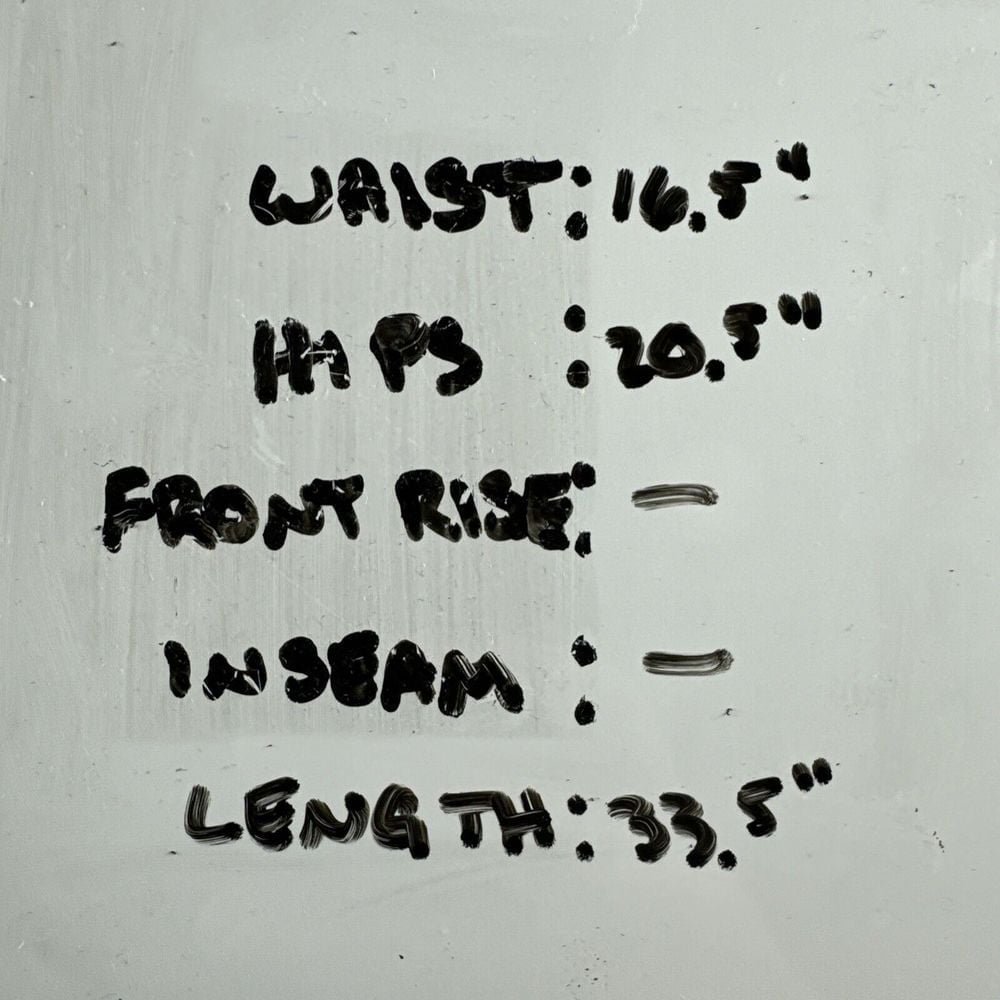 WAIST: 16.5"
HIPS : 20.5"
FRONT RISE: —
INSEAM : —
LENGTH: 33.5"